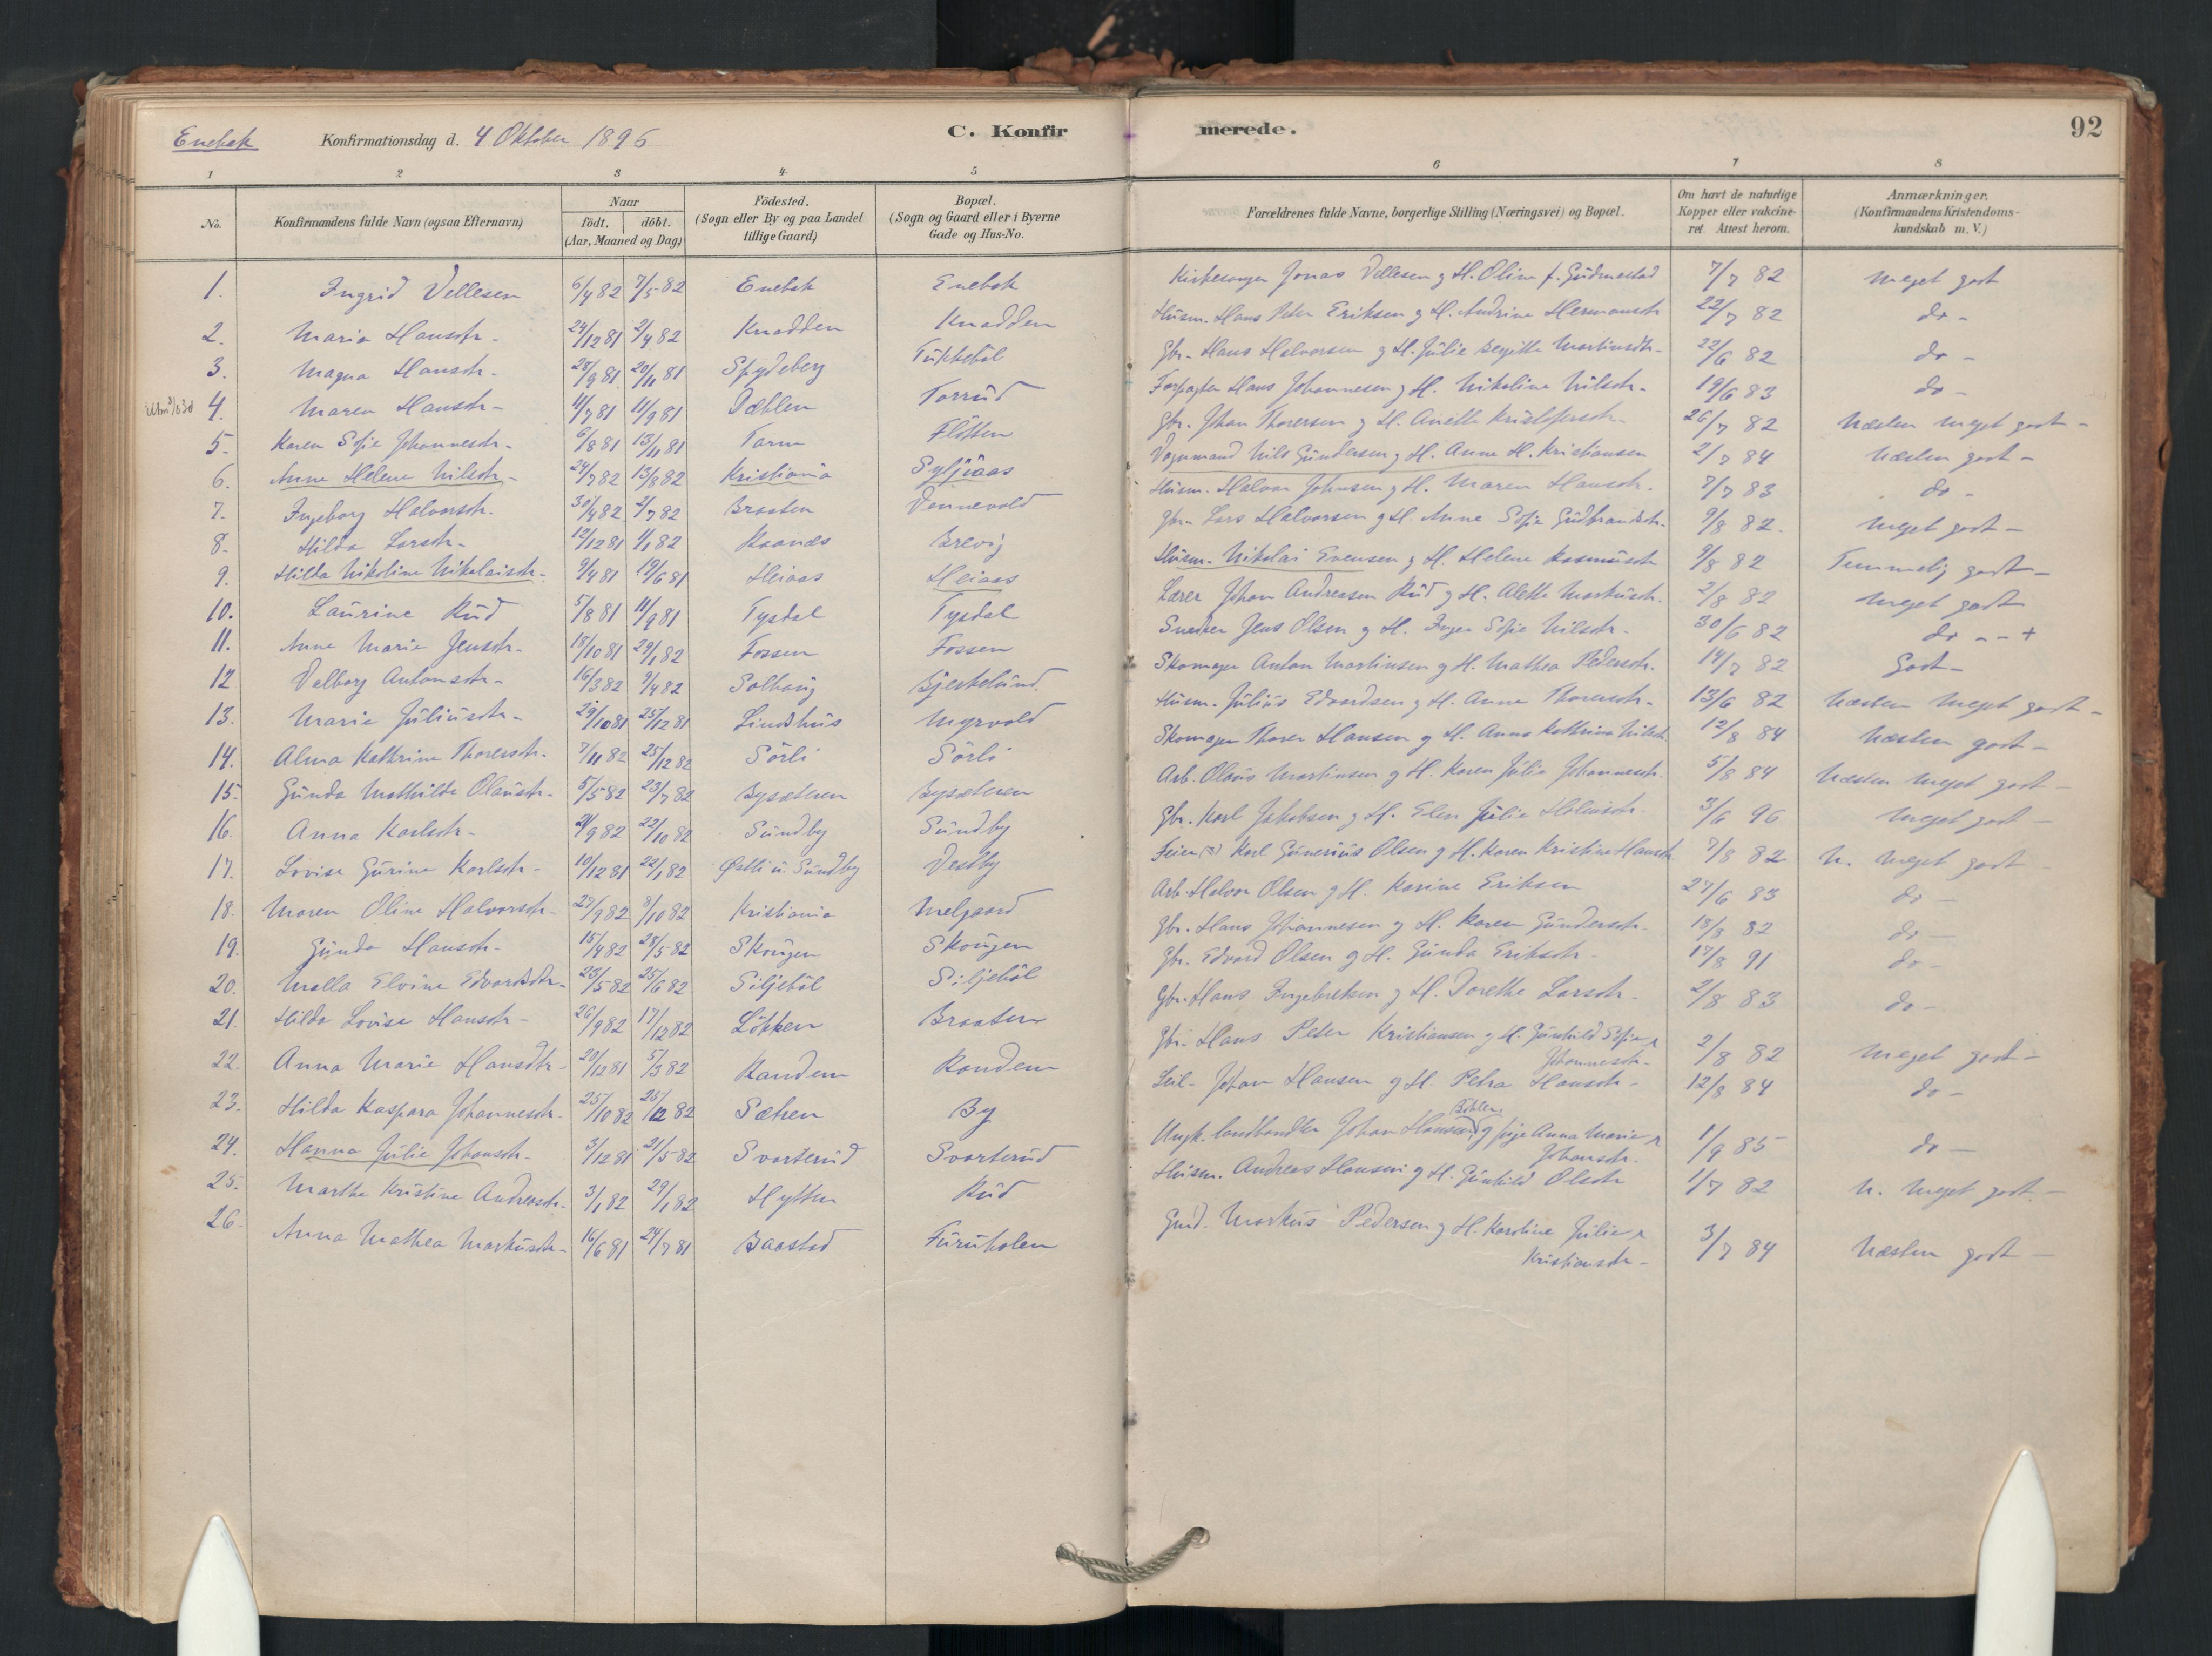 Enebak Konfirmationsdag d. 4 Oktober 1896 C. Konfirmerede. 92
1 2 3 4 5 6 7 8
No. Konfirmandens fulde Navn (ogsaa Efternavn) Naar födt. döbt. (Aar, Maaned og Dag) Födested. (Sogn eller By og paa Landet tillige Gaard) Bopæl. (Sogn og Gaard eller i Byerne Gade og Hus-No. Forældrenes fulde Navne, borgerlige Stilling (Næringsvei) og Bopæl. Om havt de naturlige Kopper eller vakcineret. Attest herom. Anmærkninger. (Konfirmandens Kristendomskundskab m. V.)
1. Ingrid Vellesen 6/4 82 7/5 82 Enebak Enebak Kirkesanger Jonas Vellesen g H. Oline f. Gudmestad 7/7 82 Meget godt
2. Maria Hansdtr. 24/12 81 2/4 82 Knadden Knadden Husm. Hans Peter Eriksen g H. Andrine Hermansdtr 22/7 82 do -
3. Magna Hansdtr. 28/9 81 20/11 81 Spydeberg Tukkebøl Gbr. Hans Halvorsen g H. Julie Bergitte Martinsdtr. 22/6 82 do -
4. Maren Hansdtr. 4/7 81 11/9 81 Dæhlen Torrud Forpagter Hans Johannesen g H. Nikoline Nilsdtr. 19/6 83 do -
5. Karen Sofie Johannesdtr. 6/8 81 13/11 81 Tarm Flötten Gbr. Johan Thoresen g H. Anette Kristofersdtr 26/7 82 Næsten meget godt -
6. Anne Helene Nilsdtr. 24/7 82 13/8 82 Kristiania Syljuaas Vognmand Nils Gundersen g H. Anne H. Kristiansen 2/7 84 Næsten godt -
7. Ingeborg Halvorsdtr. 30/4 82 2/7 82 Braaten Vennevold Husm. Halvor Johnsen g H. Maren Hansdtr. 7/7 83 do -
8. Hilda Larsdtr. 12/12 81 1/1 82 Raanæs Brevig Gbr. Lars Halvorsen g H. Anne Sofie Gudbrandsdtr. 9/8 82. Meget godt -
9. Hilda Nikoline Nikolaisdtr. 9/4 81 19/6 81 Heiaas Heiaas Husm. Nikolai Evensen g H. Helene Rasmusdtr 9/8 82 Temmelig godt -
10. Laurine Rud 5/8 81 11/9 81 Tysdal Tysdal Lærer Johan Andreasen Rud g H. Alette Markusdtr. 2/8 82 Meget godt
11. Anne Marie Jensdtr. 18/10 81 29/1 82 Fossen Fossen Snedker Jens Olsen g H. Inger Sofie Nilsdtr. 30/6 82 do - - +
12 Valborg Antonsdtr. 16/3 82 9/4 82 Solhaug Bjerkelund. Skomager Anton Martinsen g H. Mathea Pedersdtr. 14/7 82 Godt -
13. Marie Juliusdtr. 29/10 81 25/12 81 Lindhus Myrvold Husm. Julius Edvardsen g H. Anne Thorersdtr. 13/6 82 Næsten meget godt -
14. Alma Kathrine Thorersdtr. 7/11 82 25/12 82 Sörli Sörli Skomager Thorer Hansen g H. Anna Kathrine Nilsdtr 12/8 84 Næsten godt -
15. Gunda Mathilde Olausdtr. 5/5 82 23/7 82 Bysæteren Bysæteren Arb. Olaus Martinsen g H. Karen Julie Johannesdtr. 5/8 84 Næsten meget godt -
16. Anna Karlsdtr. 2/9 82 22/10 82 Sundby Sundby Gbr. Karl Jakobsen g H. Elen Julie Holmsdtr 3/6 96 Meget godt -
17. Lovise Gurine Karlsdtr. 10/12 81 22/1 82 Østli u. Sundby Vestby Feier Karl Gunerius Olsen g H. Karen Kristine Hansdtr 7/8 82 N. meget godt -
18. Maren Oline Halvorsdtr. 23/9 82 8/10 82 Kristiania Melgaard Arb. Halvor Olsen g H. Karine Eriksen 27/6 83 do -
19. Gunda Hansdtr. 15/4 82 28/5 82 Skougen Skougen Gbr. Hans Johannesen g H. Karen Gundersdtr. 18/8 82 do -
20. Malla Elvine Edvardsdtr. 23/5 82 25/6 82 Siljeböl Siljeböl Gbr. Edvard Olsen g H. Gunda Eriksdtr 17/8 91 do -
21. Hilda Lovise Hansdtr. 26/9 82 17/12 82 Løkken Braaten Gbr. Hans Ingebretsen g H. Dorethe Larsdtr. 2/8 83 do -
22. Anna Marie Hansdtr. 20/12 81 5/3 82 Randem Randem Gbr. Hans Peter Kristiansen g H. Gunhild Sofie Johannesdtr. 2/8 82 Meget godt -
23. Hilda Kaspara Johannesdtr. 25/10 82 26/12 82 Sætren By Leil. Johan Hansen g H. Petra Hansdtr. 12/8 84 do -
24. Hanna Julie Johansdtr. 3/12 81 21/5 82 Svarterud Svarterud Ungk. landhandler Johan Hansen g pige Anna Marie Johansdtr. 1/9 85 do -
25. Marthe Kristine Andreasdtr. 3/1 82 29/1 82 Hytten Rud Husm. Andreas Hansen g H. Gunhild Olsdtr 1/7 82 N. meget godt. -
26. Anna Mathea Markusdtr. 16/6 81 24/7 81 Baastad Furuholen Gmd. Markus Pedersen g H. Karoline Julie Kristiansdtr. 3/7 84 Næsten godt -